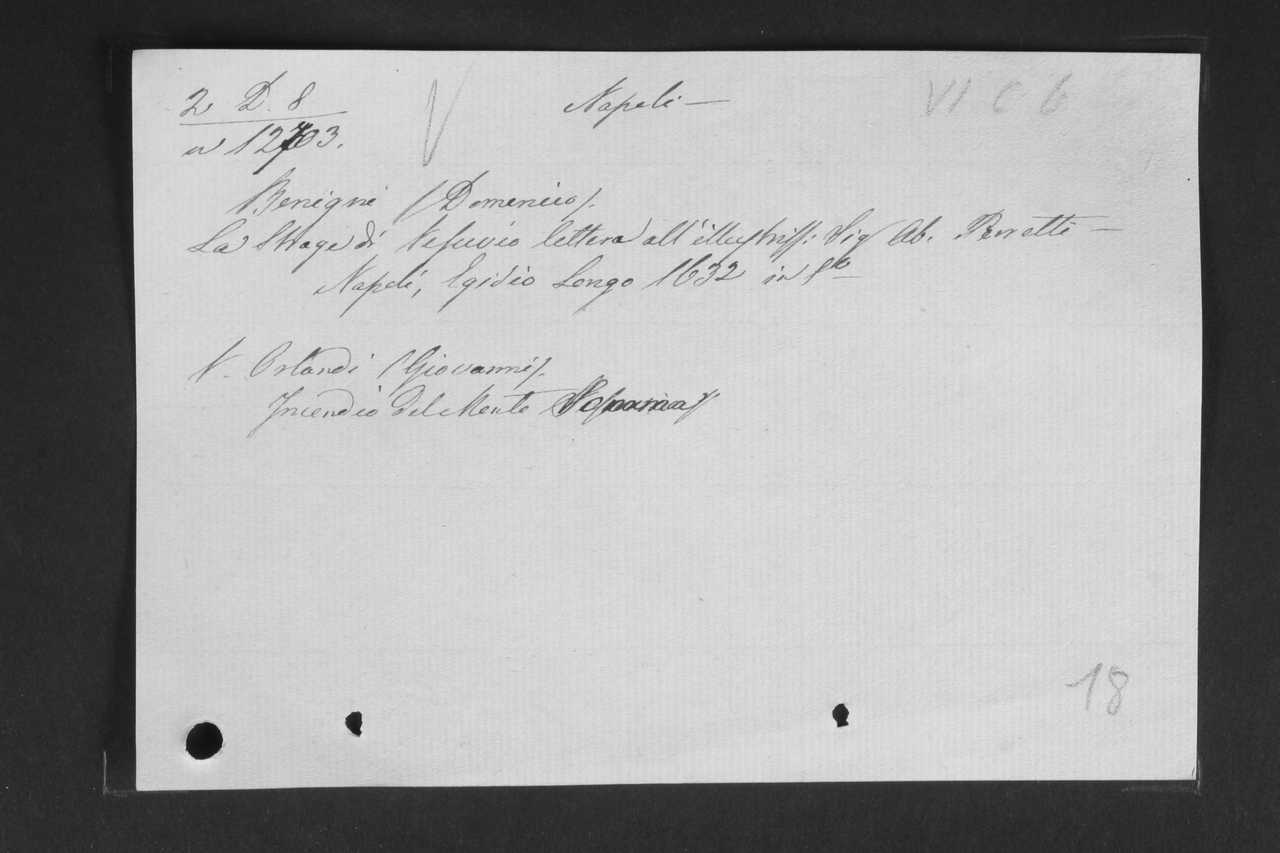 2 D. 8 V Napoli — VI C 6
a 12703.
Benigni (Domenico).
La Strage di Vesuvio lettera all'illustriss: Sig Ab. Perretti —
Napoli, Egidio Longo 1632 in 8º
V. Orlandi (Giovanni).
Incendio del Monte
18